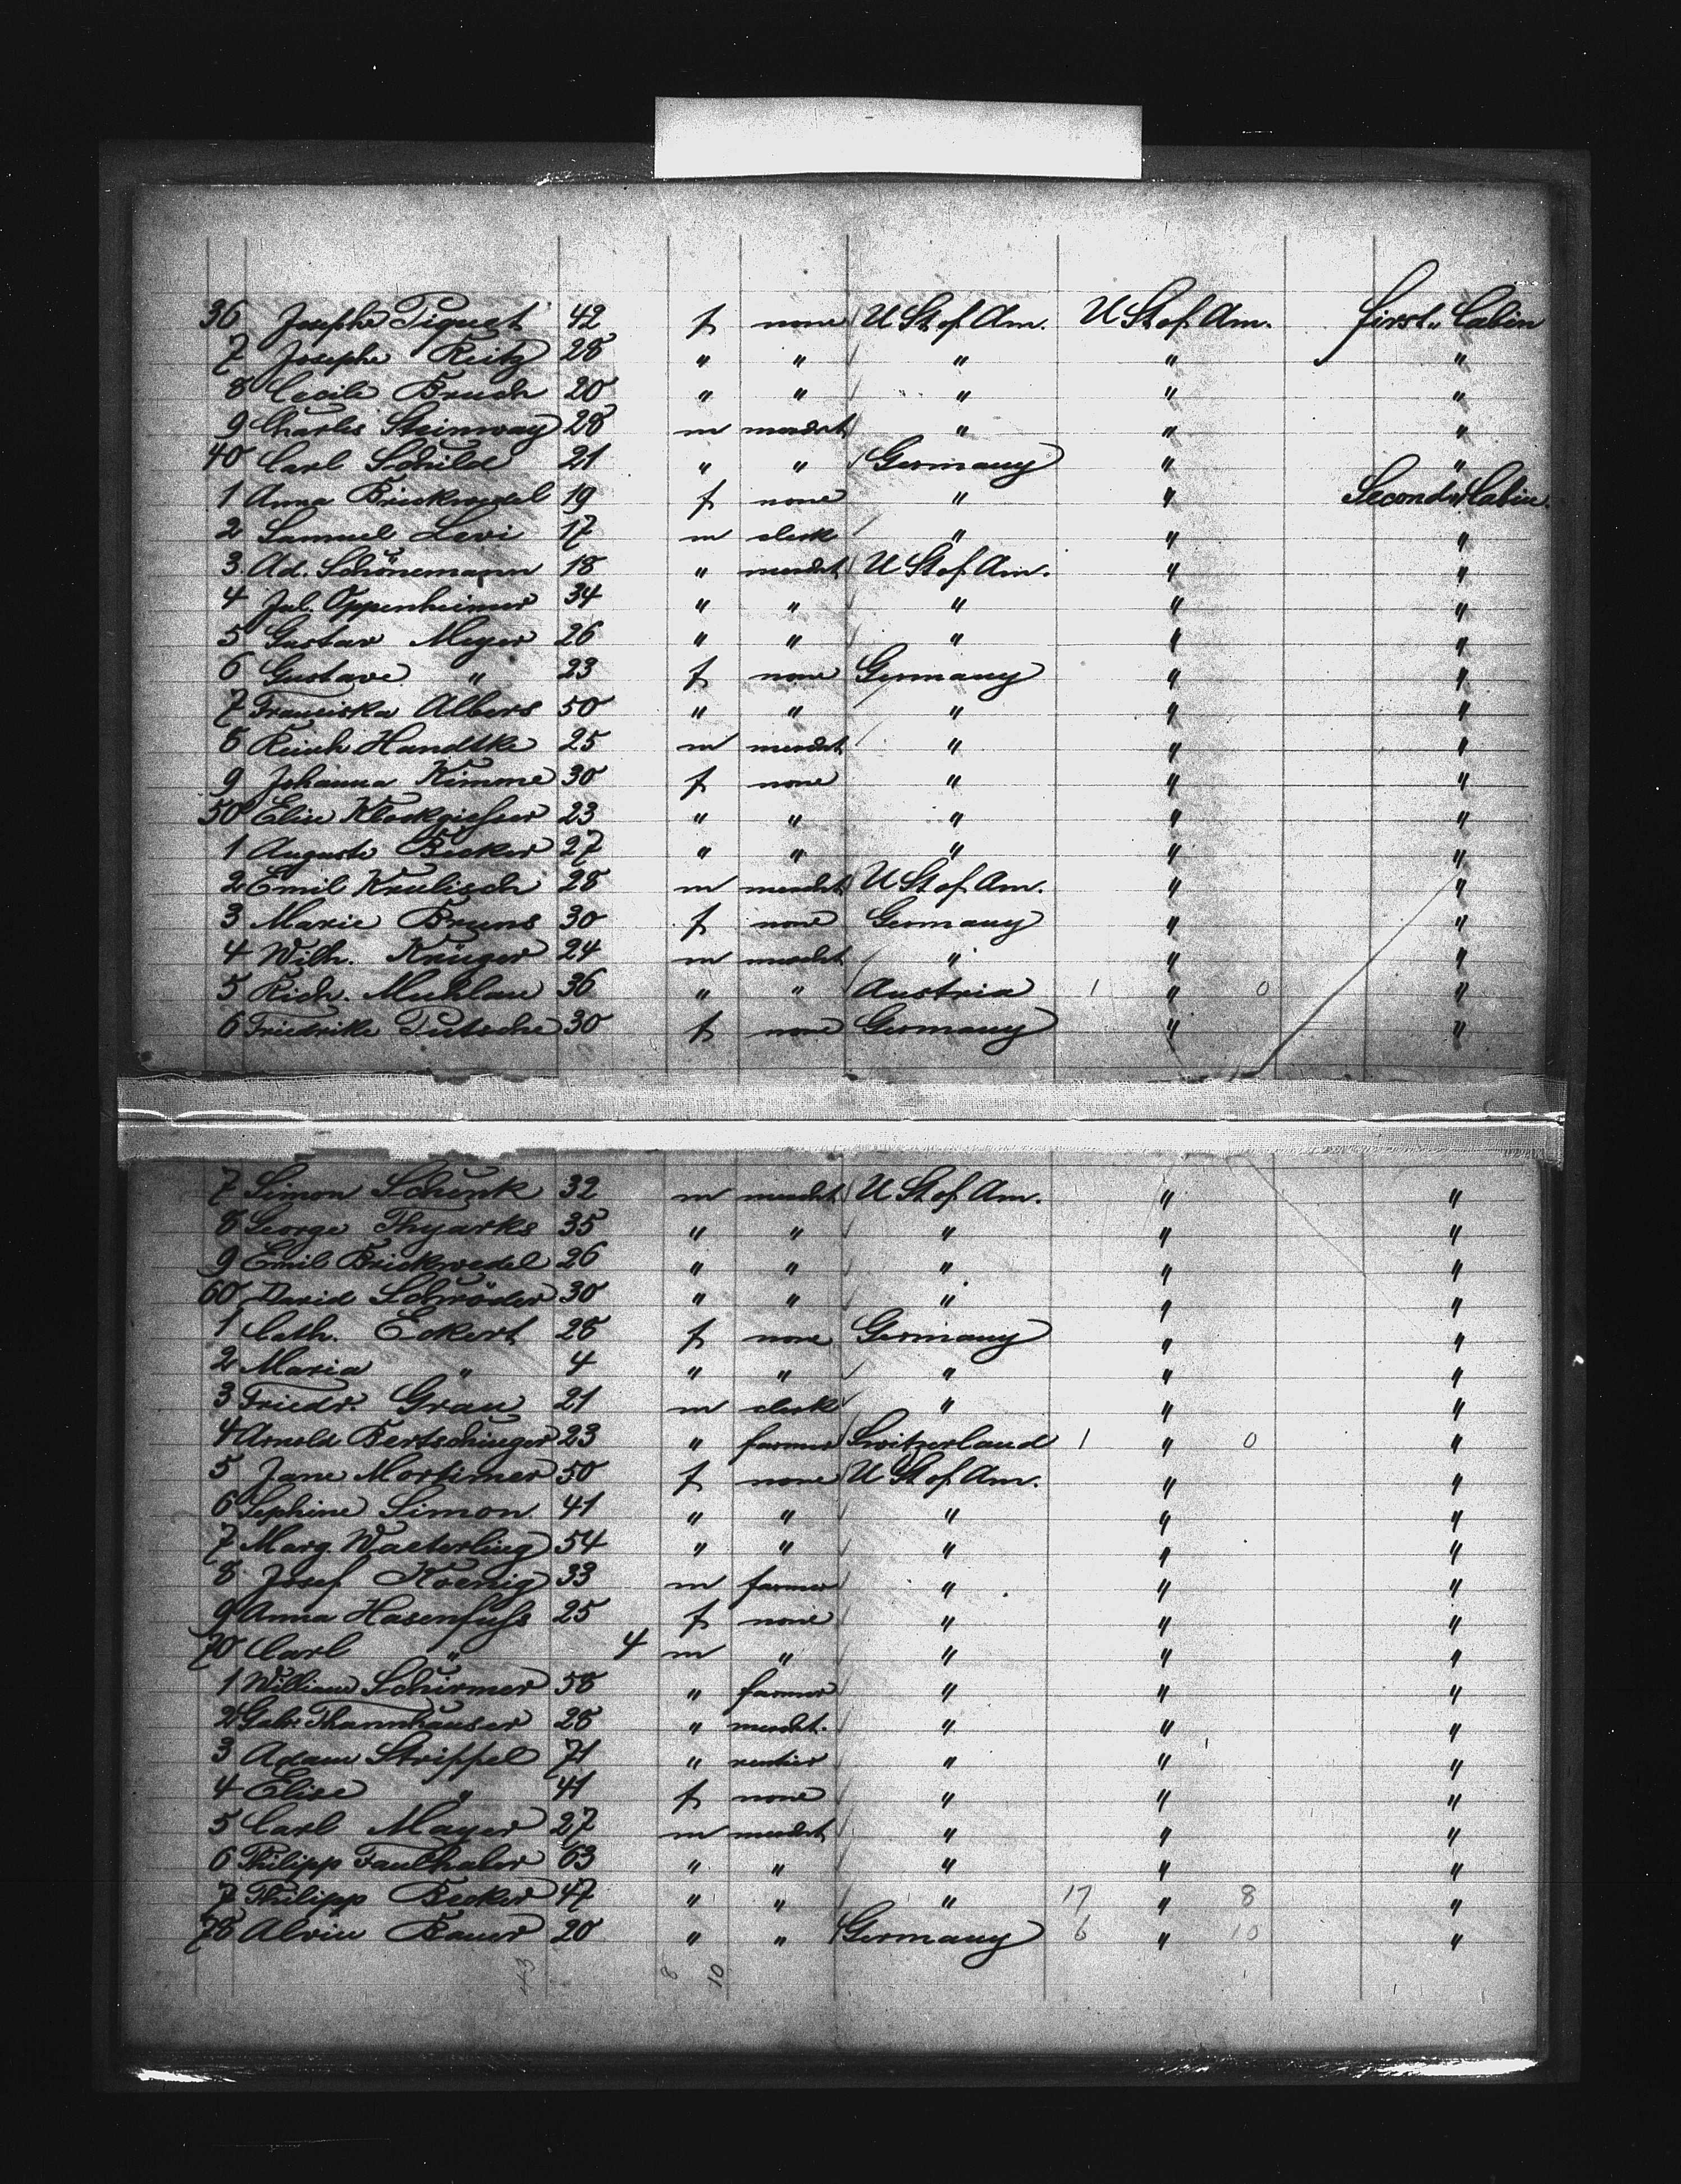 36 Josephe Piquet 42 f none U St. of Am. U St. of Am. first Cabin
7 Josephe Reitz 28 " " " " "
8 Cecile Bruch 20 " " " " "
9 Charles Steinway 28 m mercht " " "
40 Carl Schild 21 " " Germany " "
1 Anna Brickwedel 19 f none " " Second Cabin.
2 Samuel Levi 17 m clerk " " "
3. Ad. Schönemann 18 " mercht U St of Am. " "
4 Jul. Oppenheimer 34 " " " " "
5 Gustav Meyer 26 " " " " "
6 Gustave " 23 f none Germany " "
7 Franciska Albers 50 " " " " "
8 Handtke 25 m mercht " " "
9 Johanna Kimme 30 f none " " "
50 Elise Klockgiesser 23 " " " " "
1 Auguste Becker 27 " " " " "
2 Emil Krulisch 28 m mercht U St of Am. " "
3 Marie Bruns 30 f none Germany " "
4 Wilh. Krüger 24 m mercht " " "
5 Rich. Muhlau 36 " " Austria 1 " 0 "
6 Friedrike Putsche 30 f none Germany " "
7 Simon Schenk 32 m mercht U St of Am. " "
8 George Thyarks 35 " " " " "
9 Emil Brickwedel 26 " " " " "
60 David Schröder 30 " " " " "
1 Cath. Eckert 28 f none Germany " "
2 Maria " 4 " " " " "
3 Friedr. Grau 21 m clerk " " "
4 Arnold Bertschinger 23 " farmer Switzerland 1 " 0 "
5 Jane Mortimer 50 f none U St of Am. " "
6 Sephine Simon 41 " " " " "
7 Marg. Waeterling 54 " " " " "
8 Josef Koenig 33 m farmer " " "
9 Anna Hasenfuss 25 f none " " "
70 Carl " 4 m " " " "
1 William Schirmer 58 " farmer " " "
2 Gabr. Thannhauser 28 " mercht. " " "
3 Adam Strippel 71 " rentier " " "
4 Elise " 41 f none " " "
5 Carl Mayer 27 m mercht " " "
6 Philipp Faulhaber 63 " " " " "
7 Philipp Becker 47 " " " 17 " 8 "
78 Alvin Bauer 20 " " Germany 6 " 10 "
43 8 10